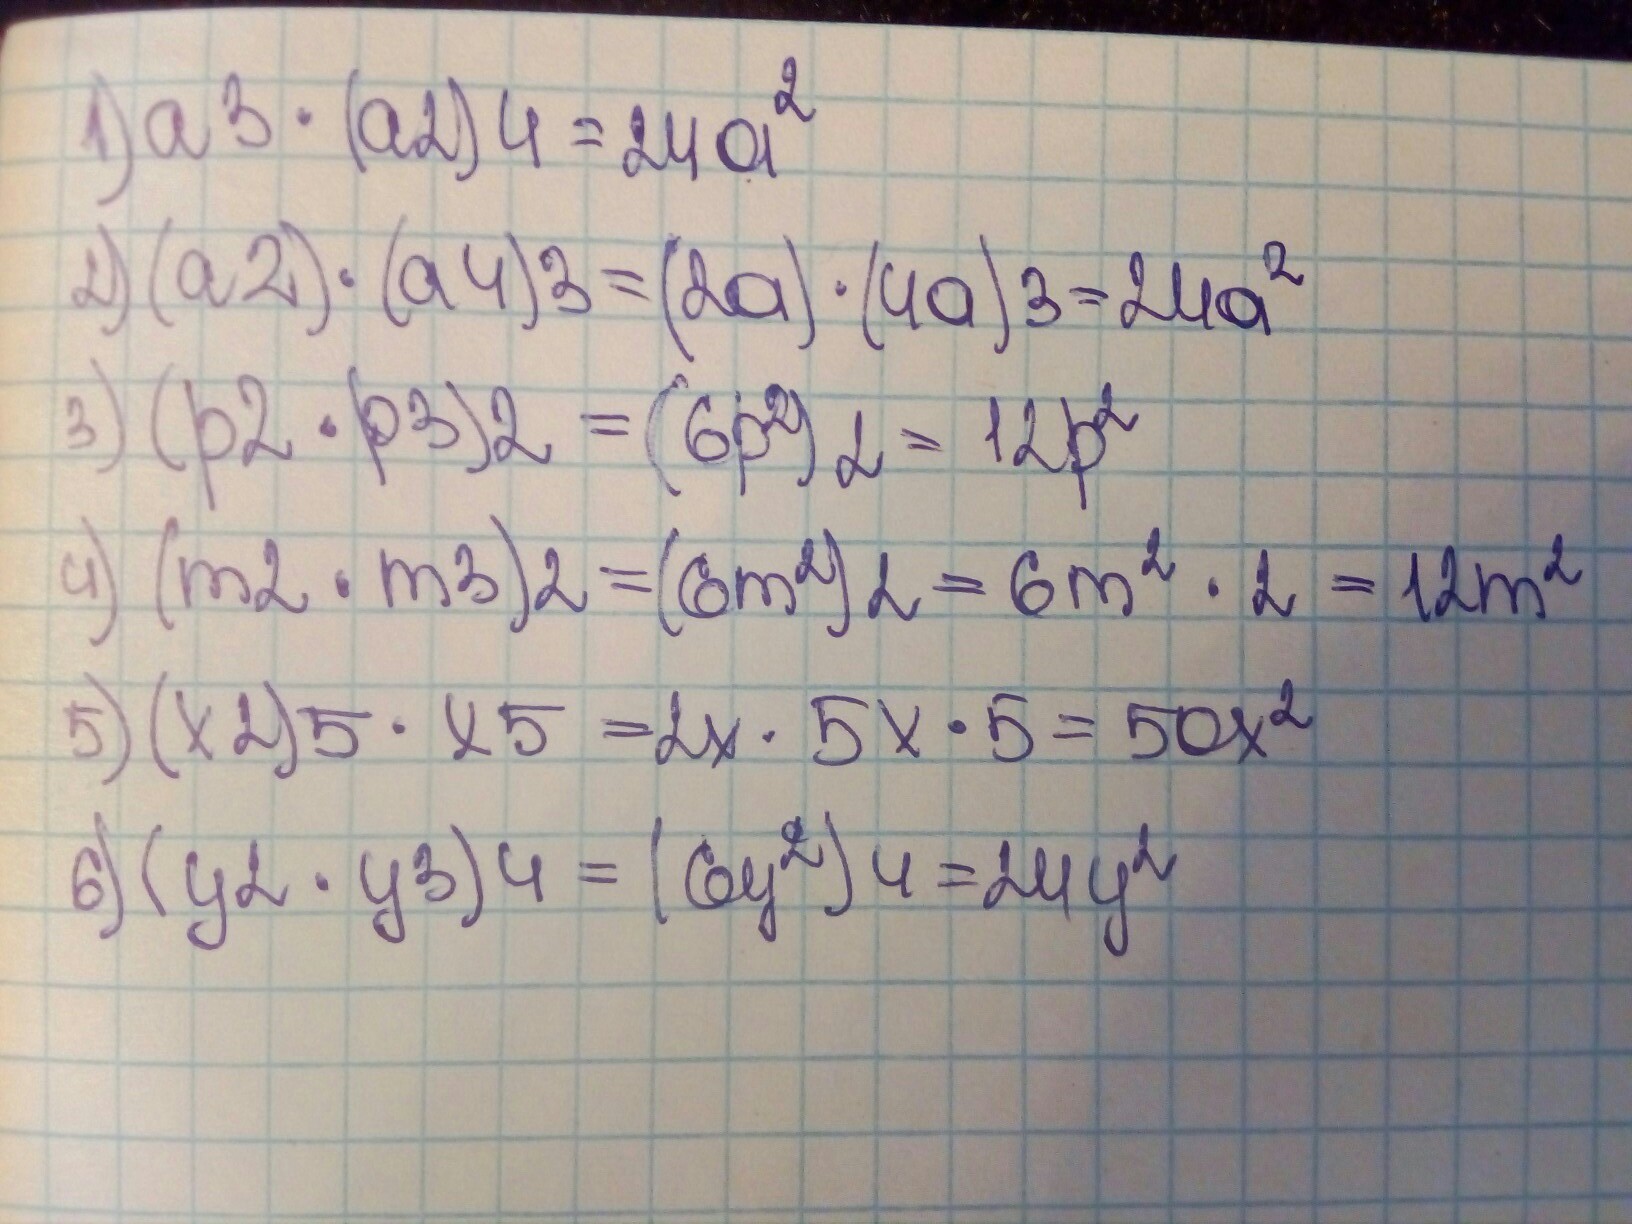 1) a3 · (a2)4 = 24a²
2) (a2) · (a4)3 = (2a) · (4a)3 = 24a²
3) (p2 · p3)2 = (6p²)2 = 12p²
4) (m2 · m3)2 = (6m²)2 = 6m² · 2 = 12m²
5) (x2)5 · x5 = 2x · 5x · 5 = 50x²
6) (y2 · y3)4 = (6y²)4 = 24y²